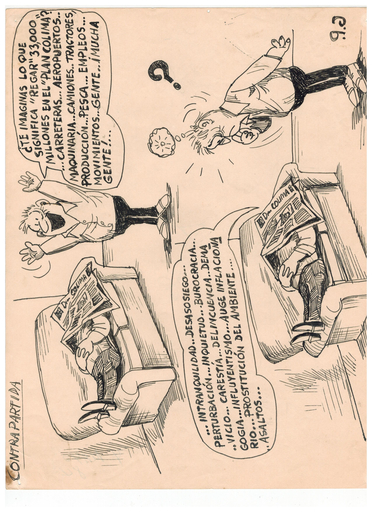 CONTRAPARTIDA
¿TE IMAGINAS LO QUE
SIGNIFICA "REGAR" 33,000
MILLONES EN EL "PLAN COLIMA"?
...CARRETERAS...AEROPUERTOS...
MAQUINARIA...CAMIONES...TRACTORES,
PRODUCCIÓN...PESCA...EMPLEOS...
MOVIMIENTOS...GENTE...¡MUCHA
GENTE!...
COLIMA
?
...INTRANQUILIDAD...DESASOSIEGO...
PERTURBACIÓN...INQUIETUD...BUROCRACIA...
...VICIO...CARESTIA...DELINCUENCIA...DEMA
GOGIA...INFLUYENTISMO...AUGE INFLACIONA
RIO...PROSTITUCIÓN DEL AMBIENTE...
ASALTOS...
COLIMA